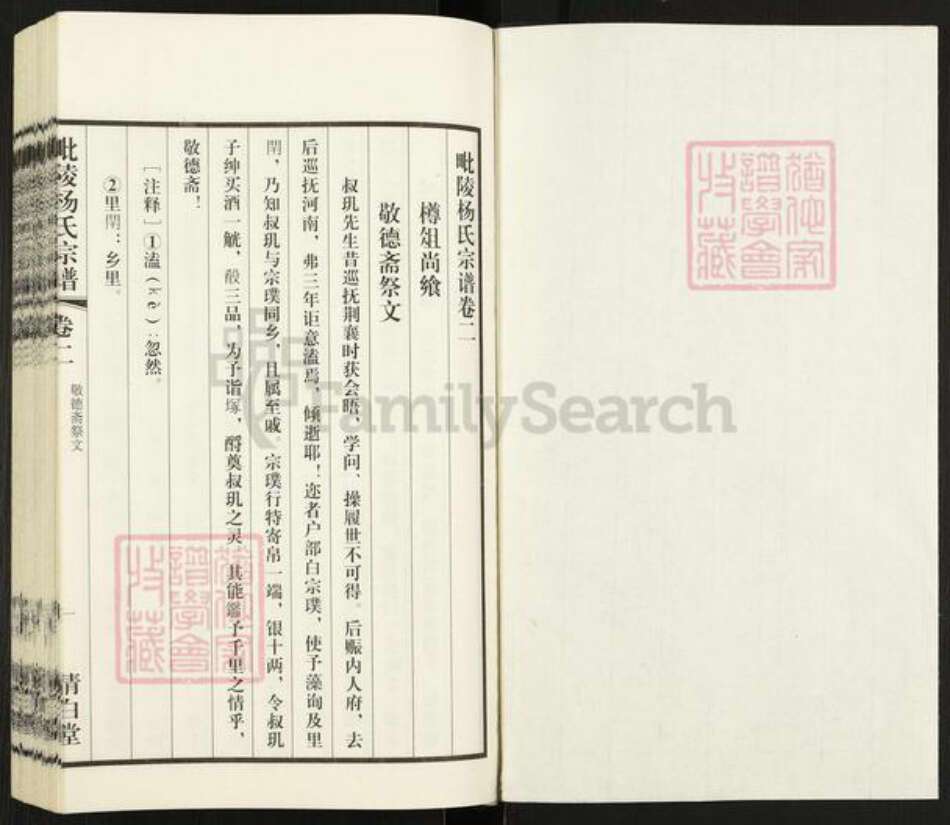 毗陵杨氏宗谱卷二
樽俎尚飨
敬德斋祭文
叔玑先生昔巡抚荆襄时获会晤，学问、操履世不可得。后赈内人府，去
后巡抚河南，弗三年讵意溘焉，倾逝耶！迩者户部白宗璞，使予藻询及里
閈，乃知叔玑与宗璞同乡，且属至戚。宗璞行特寄帛一端，银十两，令叔玑
子绅买酒一觥，殽三品，为予诣塚，酹奠叔玑之灵，其能鑑予千里之情乎，
敬德斋！
［注释］①溘（kè）：忽然。
②里閈：乡里。
毗陵杨氏宗谱 卷二 敬德斋祭文 一 清白堂
猶他家
譜學會
收藏
猶他家
譜學會
收藏
FamilySearch